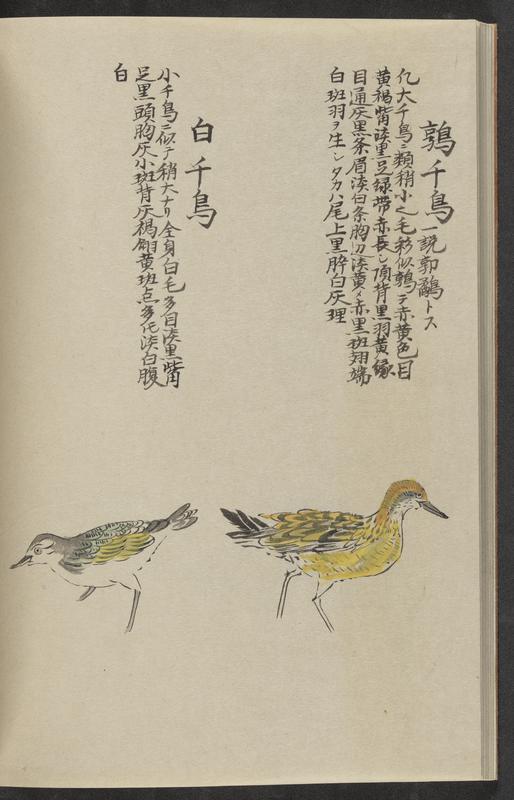 鶉千鳥 一説郭鷸トス
仡大千鳥ニ類稍小之毛彩似鶉テ赤黄色目
黄褐觜淡黒足緑帯赤長シ頂背黒羽黄縁
目通灰黒条眉淡白条胸辺淡黄〆赤黒斑翅端
白斑羽ヲ生シタカハ尾上黒脺白灰理
白千鳥
小千鳥ニ似テ稍大ナリ全身白毛多目淡黒觜同
足黒頭胸灰小斑背灰褐翅黄斑点多仡淡白腹
白